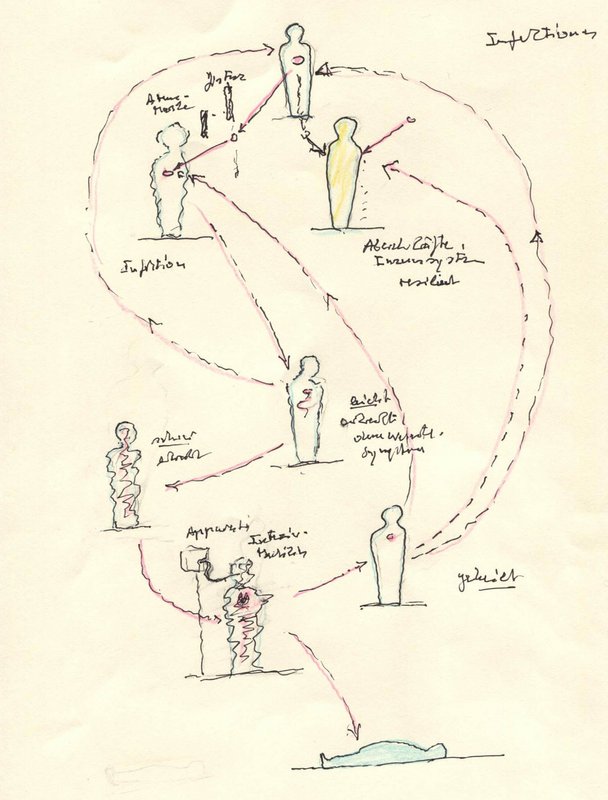 Infektionen
Atem-
Maske
Infektion
Abwehrkräfte,
Immunsystem
resilient
leicht
erkrankt,
Symptom
schwer
erkrankt
Apparate
Intensiv-
Medizin
geheilt